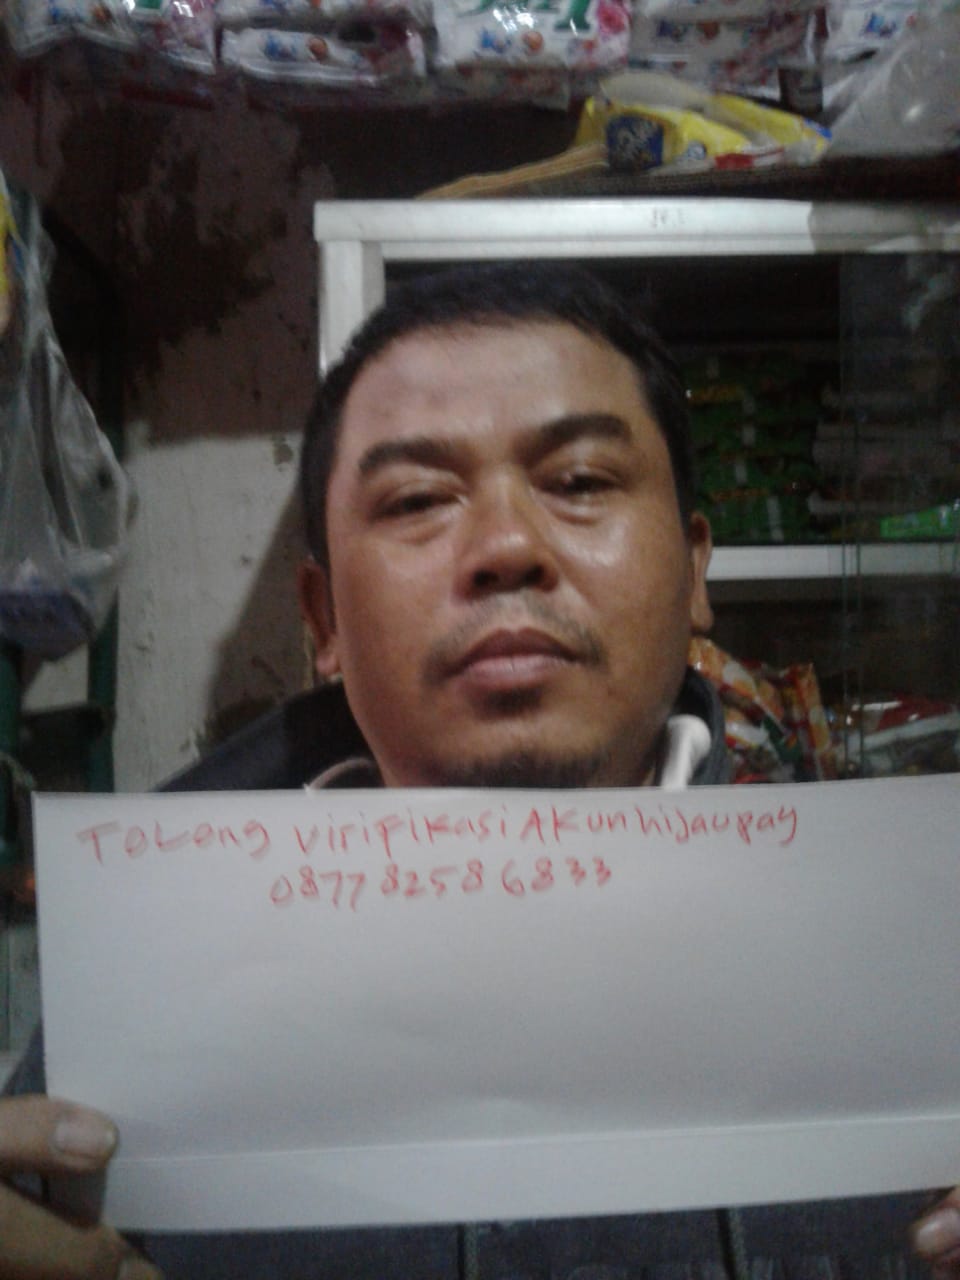 Toleng virifikasi Akun hijaupay
0877 8258 6833